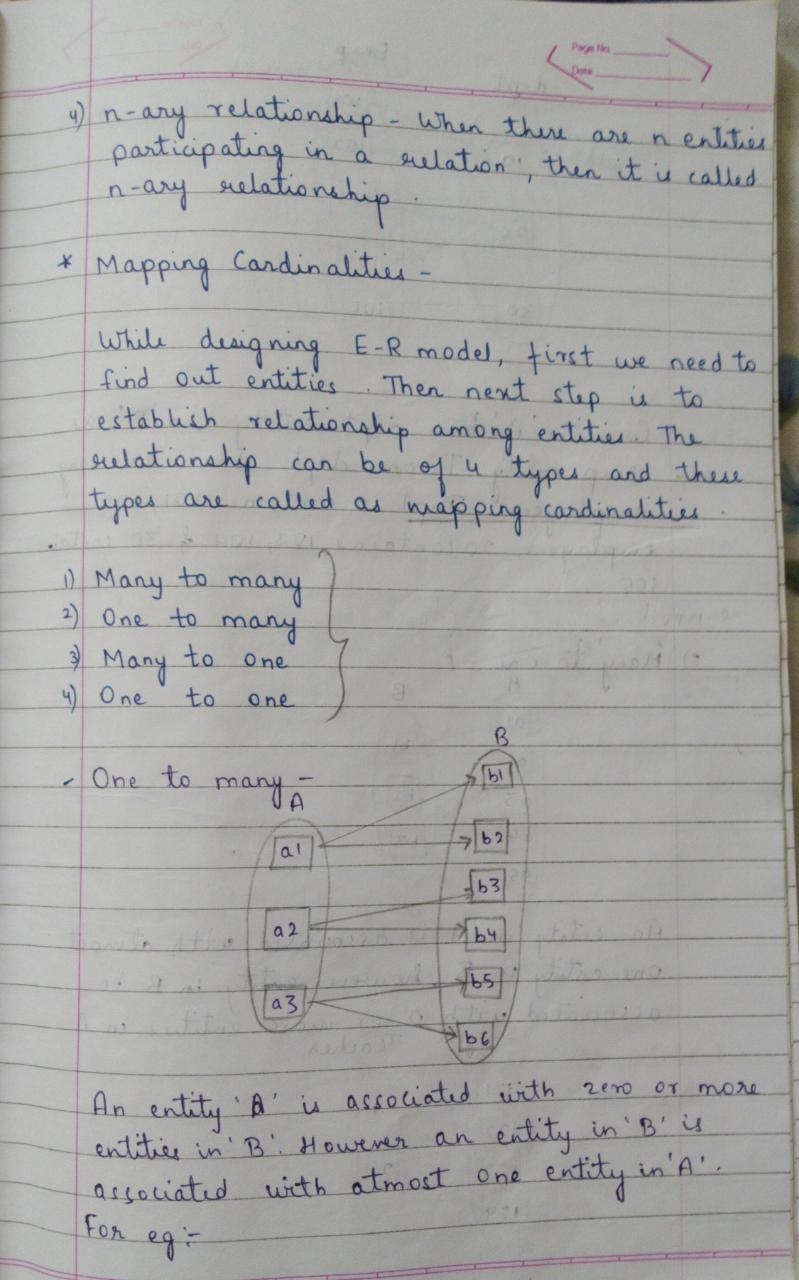 Page No.
Date
4) n-ary relationship - When there are n entities
participating in a relation, then it is called
n-ary relationship.
* Mapping Cardinalities -
While designing E-R model, first we need to
find out entities. Then next step is to
establish relationship among entities. The
relationship can be of 4 types and these
types are called as mapping cardinalities.
1) Many to many
2) One to many
3) Many to one
4) One to one
- One to many -
A
B
a1
a2
a3
b1
b2
b3
b4
b5
b6
An entity 'A' is associated with zero or more
entities in 'B'. However an entity in 'B' is
associated with atmost one entity in 'A'.
For eg :-